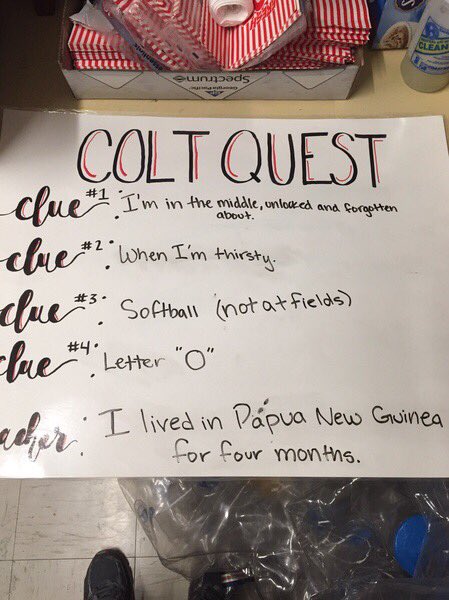 CLEAN
Spectrum
Georgia-Pacific
COLT QUEST
clue #1: I'm in the middle, unlocked and forgotten
about.
clue #2: When I'm thirsty.
clue #3: Softball (not at fields)
clue #4: Letter "O"
acher: I lived in Papua New Guinea
for four months.